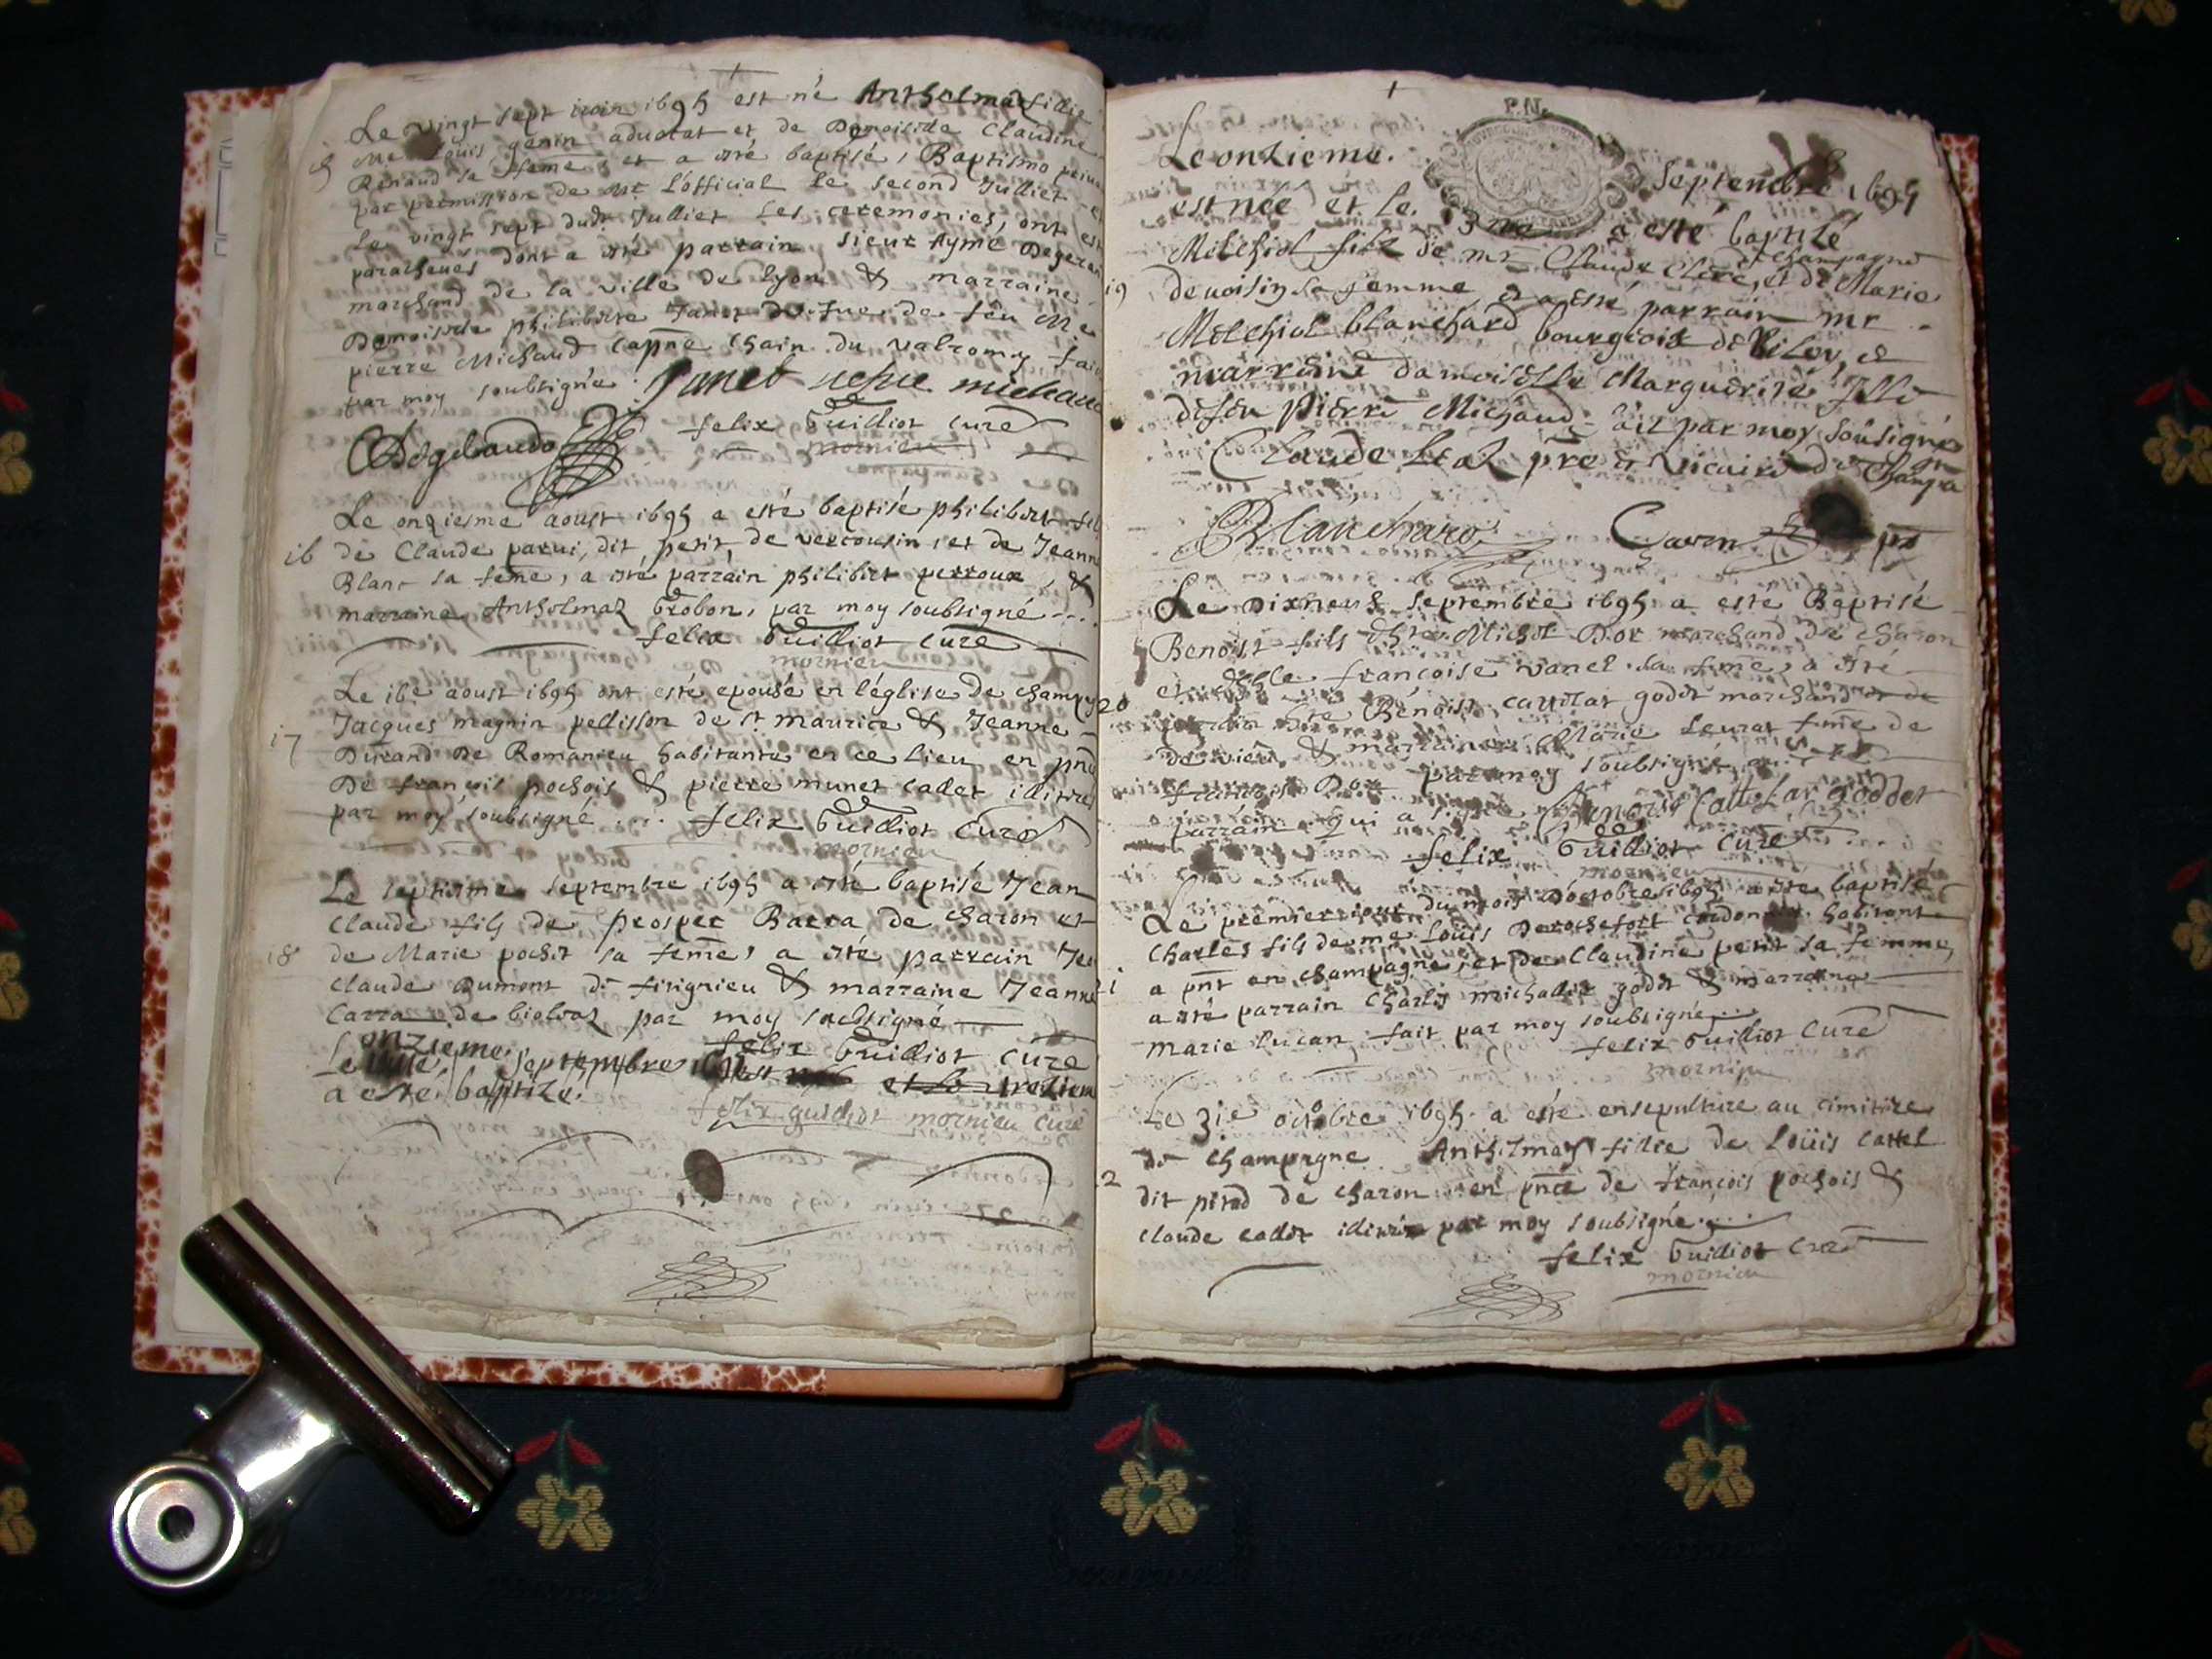 Le vingt sept iuin 1695 est né Antholmaz fillie
Me Louis genin aduocat et de Demoiselle Claudine
15
Renaud sa feme, et a esté baptisé, Baptismo
par permission de Mr L'official le second Julliet
Le vingt sept dudt Julliet les ceremonies, ont esté
paracheues dont a esté parrain sieur Aymé
marchand de la ville de lyon & marraine
Demoiselle philiberte Janet de feu Me
pierre Michaud cappne chain du valromey fait
par moy soubsigné. Janet michaud
felix Guilliot curé
mornieu
Le onziesme aoust 1695 a esté baptisé philibert fils
16 de Claude parui, dit petit, de vercousin, et de Jeanne
Blanc sa feme, a esté parrain philibert perroux, &
marraine Antholmaz Grobon, par moy soubsigné ....
felix Guilliot curé
mornieu
Le 16e aoust 1695 ont esté epousé en l'église de champag
Jacques magnin pellisson de st maurice & Jeanne
17
Durand De Romanieu habitante en ce lieu en pnce
De françois pochois & pierre munet cadet illitré
par moy soubsigné .... felix Guilliot Curé
mornieu
Le septiesme septembre 1695 a esté baptisé Jean
Claude fils de prosper Barra de charon et
18 de Marie pochet sa feme, a esté parrain Jea
claude Dumont de fitignieu & marraine Jeanne
Carra de biolaz par moy soubsigné
felix Guilliot curé
Le onzieme septembre et le treziem
a esté baptizé.
felix guilliot mornieu curé
Le onzieme. Septembre 1695
est née et le. 13me a esté baptisé
de champagne
Melchiol filz de mr Claude Clerc, et de Marie
19 devoisin sa femme et a esté parrain mr
Melchiol blanchard bourgeois de et
marraine damoiselle Marguerite fille
de feu Pierre Michaud, fait par moy soûsigné
Claude Leal pre et vicaire de Champa
gn
Blanchard
Le Dixneuf septembre 1695 a esté Baptisé
Benoist fils Michel Dor marchand de charon
et françoise vanel sa feme, a esté
20 parrain Benoist cattelar godet marchand
& marraine Marie Leurat feme de
françois Dor par moy soubsigné,
parrain qui a signé Cattelar goddet
felix Guilliot Curé
mornieu
Le premier iour du mois D'octobre 1695 a esté baptisé
Charles fils de me Loüis Derochefort cordonnier habitant
21 a pnt en champagne, et de Claudine petit sa femme,
a esté parrain Charles michallet godet & marraine
Marie Lucan fait par moy soubsigné ....
felix Guilliot Curé
mornieu
Le 31e octobre 1695 a esté ensepulture au cimitire
de champagne Anthelmaz fillie de Loüis cattel
22 dit pitod de charon en pnce de françois pochois &
claude cadet illitré par moy soubsigné ....
felix Guilliot Curé
mornieu